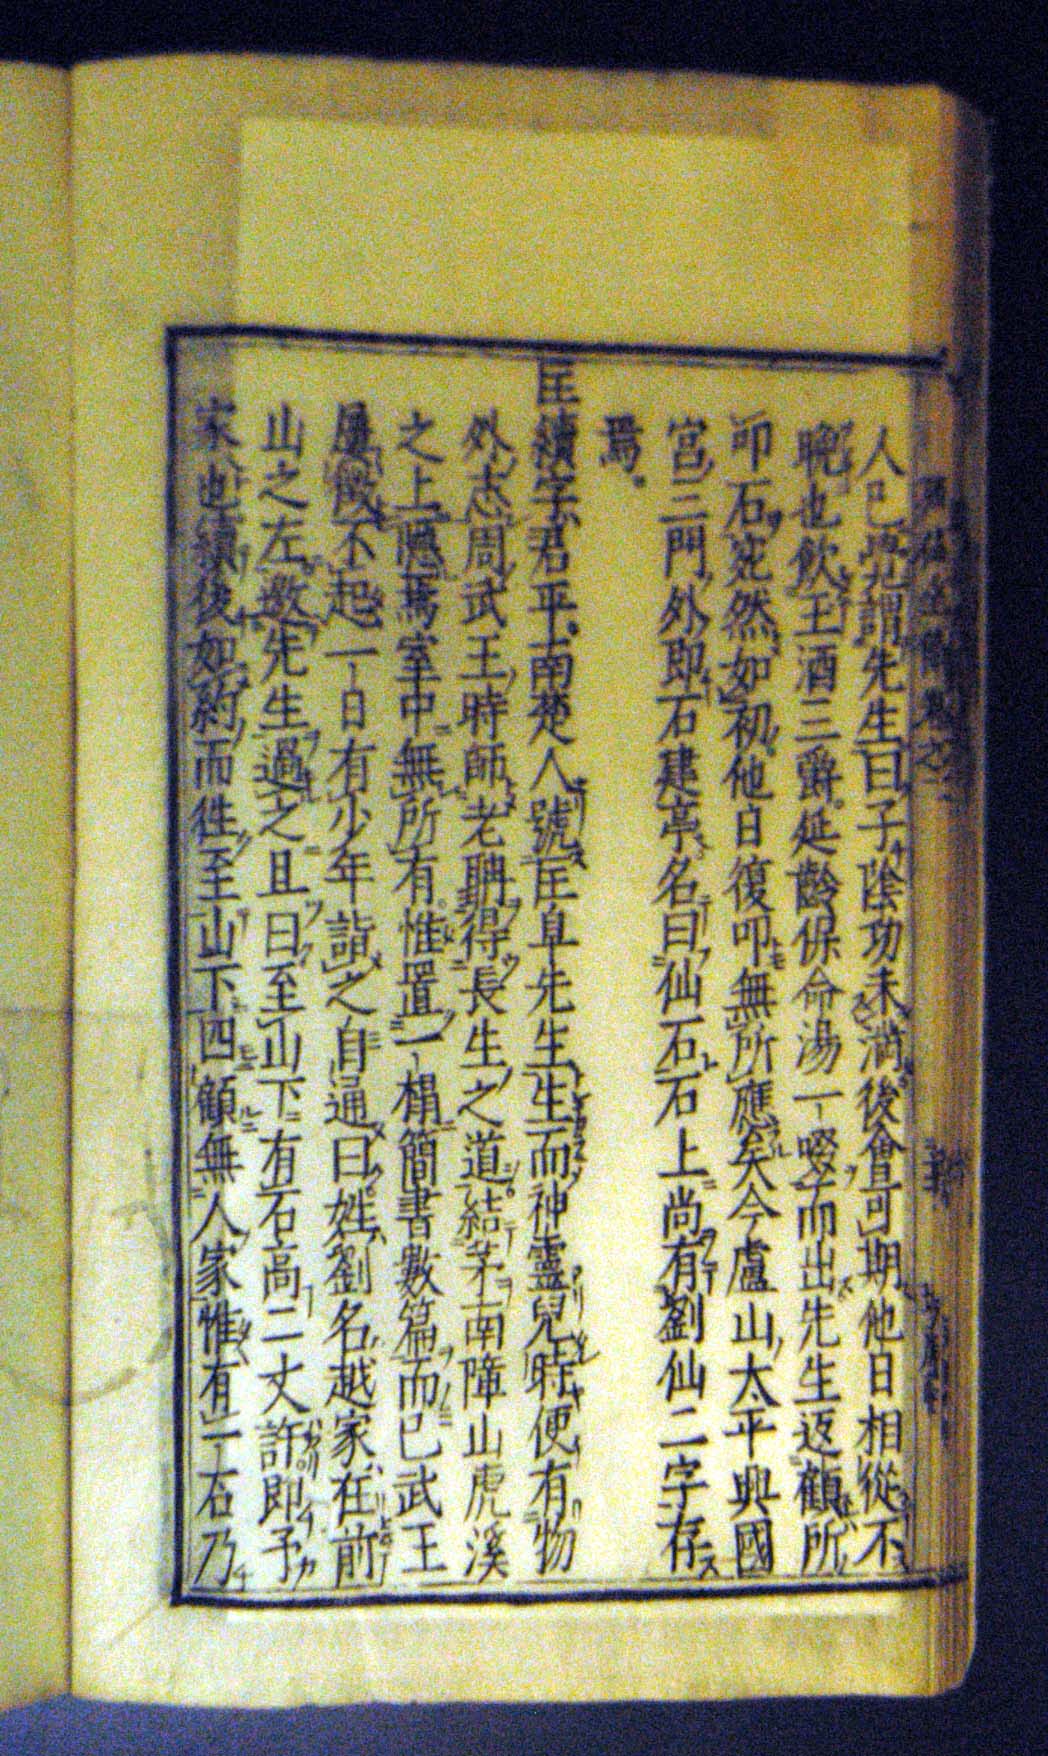 人已␣謂先生曰子陰功未満後會可期他日相從不
晩也飲玉酒三爵延齡保命湯一啜而出先生返顧所
叩石宛然如初他日復叩無所應矣今廬山太平興國
宮三門外即石建亭名曰仙石石上尚有劉仙二字存
焉
匡續字君平南楚人號匡阜先生生而神靈兒時便有物
外志周武王時師老聃得長生之道結茅南障山虎溪
之上隠焉室中無所有惟置一榻簡書數篇而已武王
屢徴不起一日有少年詣之自通曰姓劉名越家在前
山之左邀先生過之且曰至山下有石高二丈許即予
家也續後如約而徃至山下四顧無人家惟有一石乃